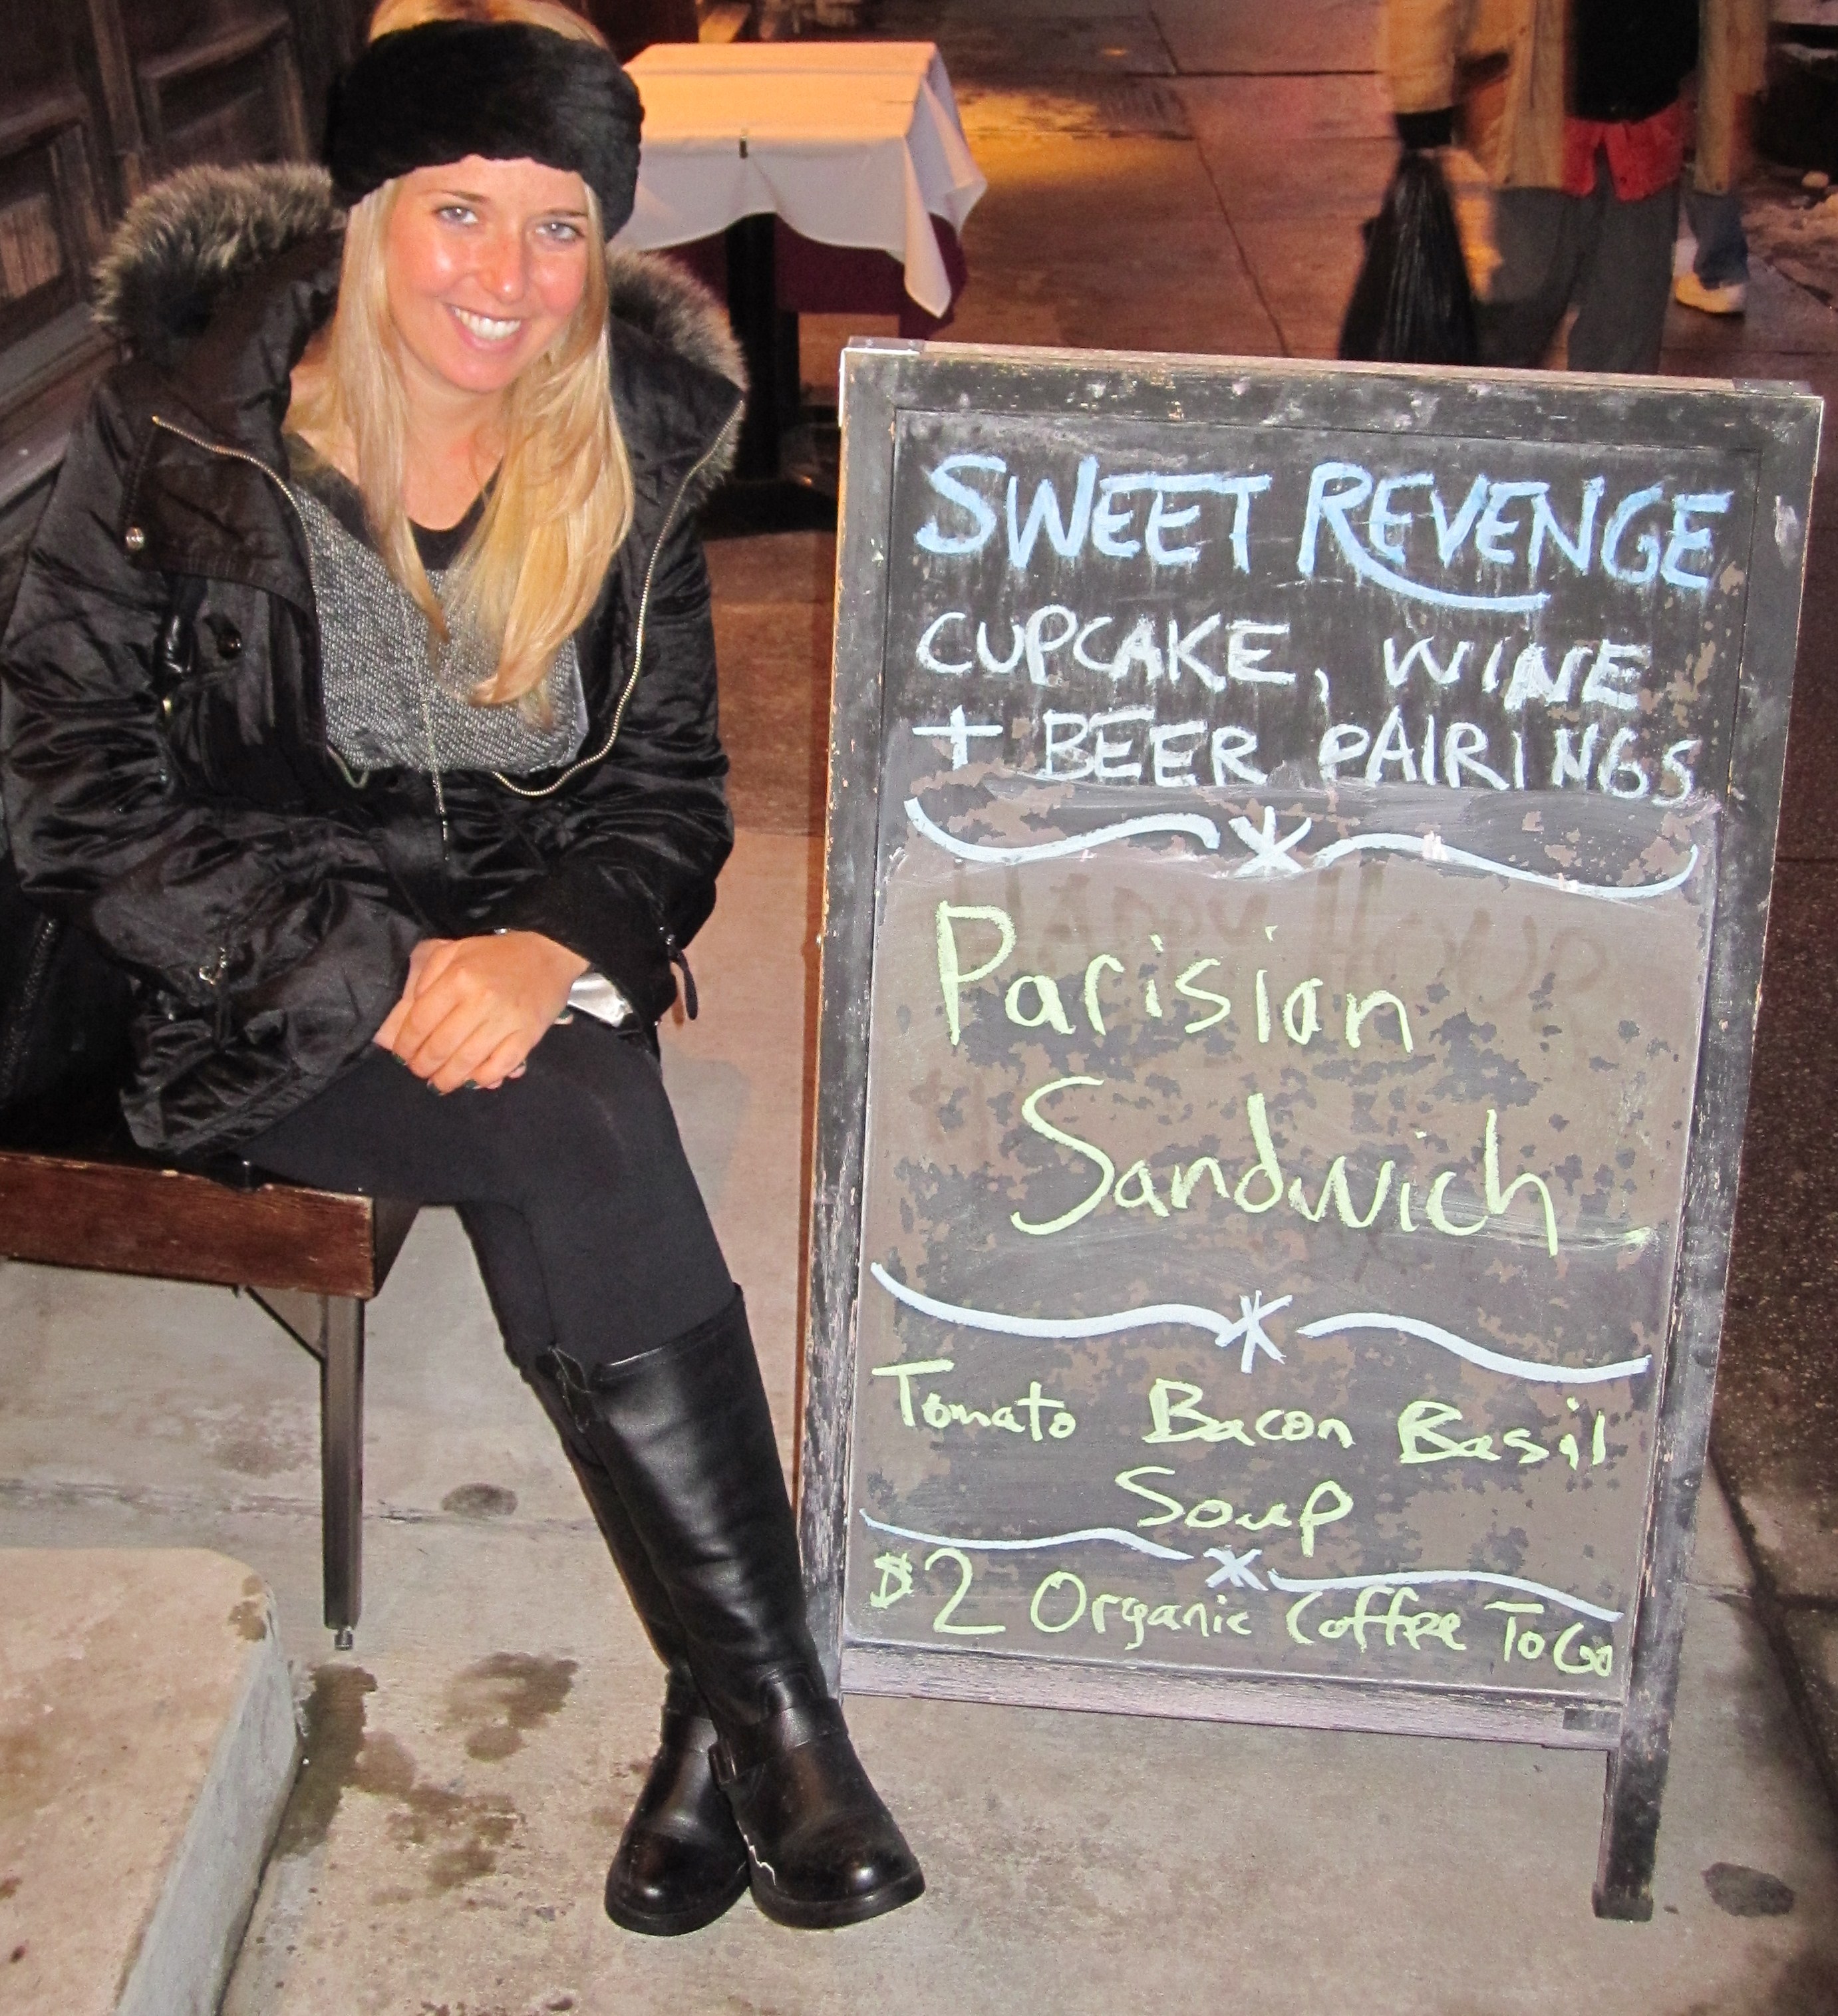 SWEET REVENGE
CUPCAKE, WINE
+ BEER PAIRINGS
Parisian
Sandwich
Tomato Bacon Basil
Soup
$2 Organic Coffee To Go